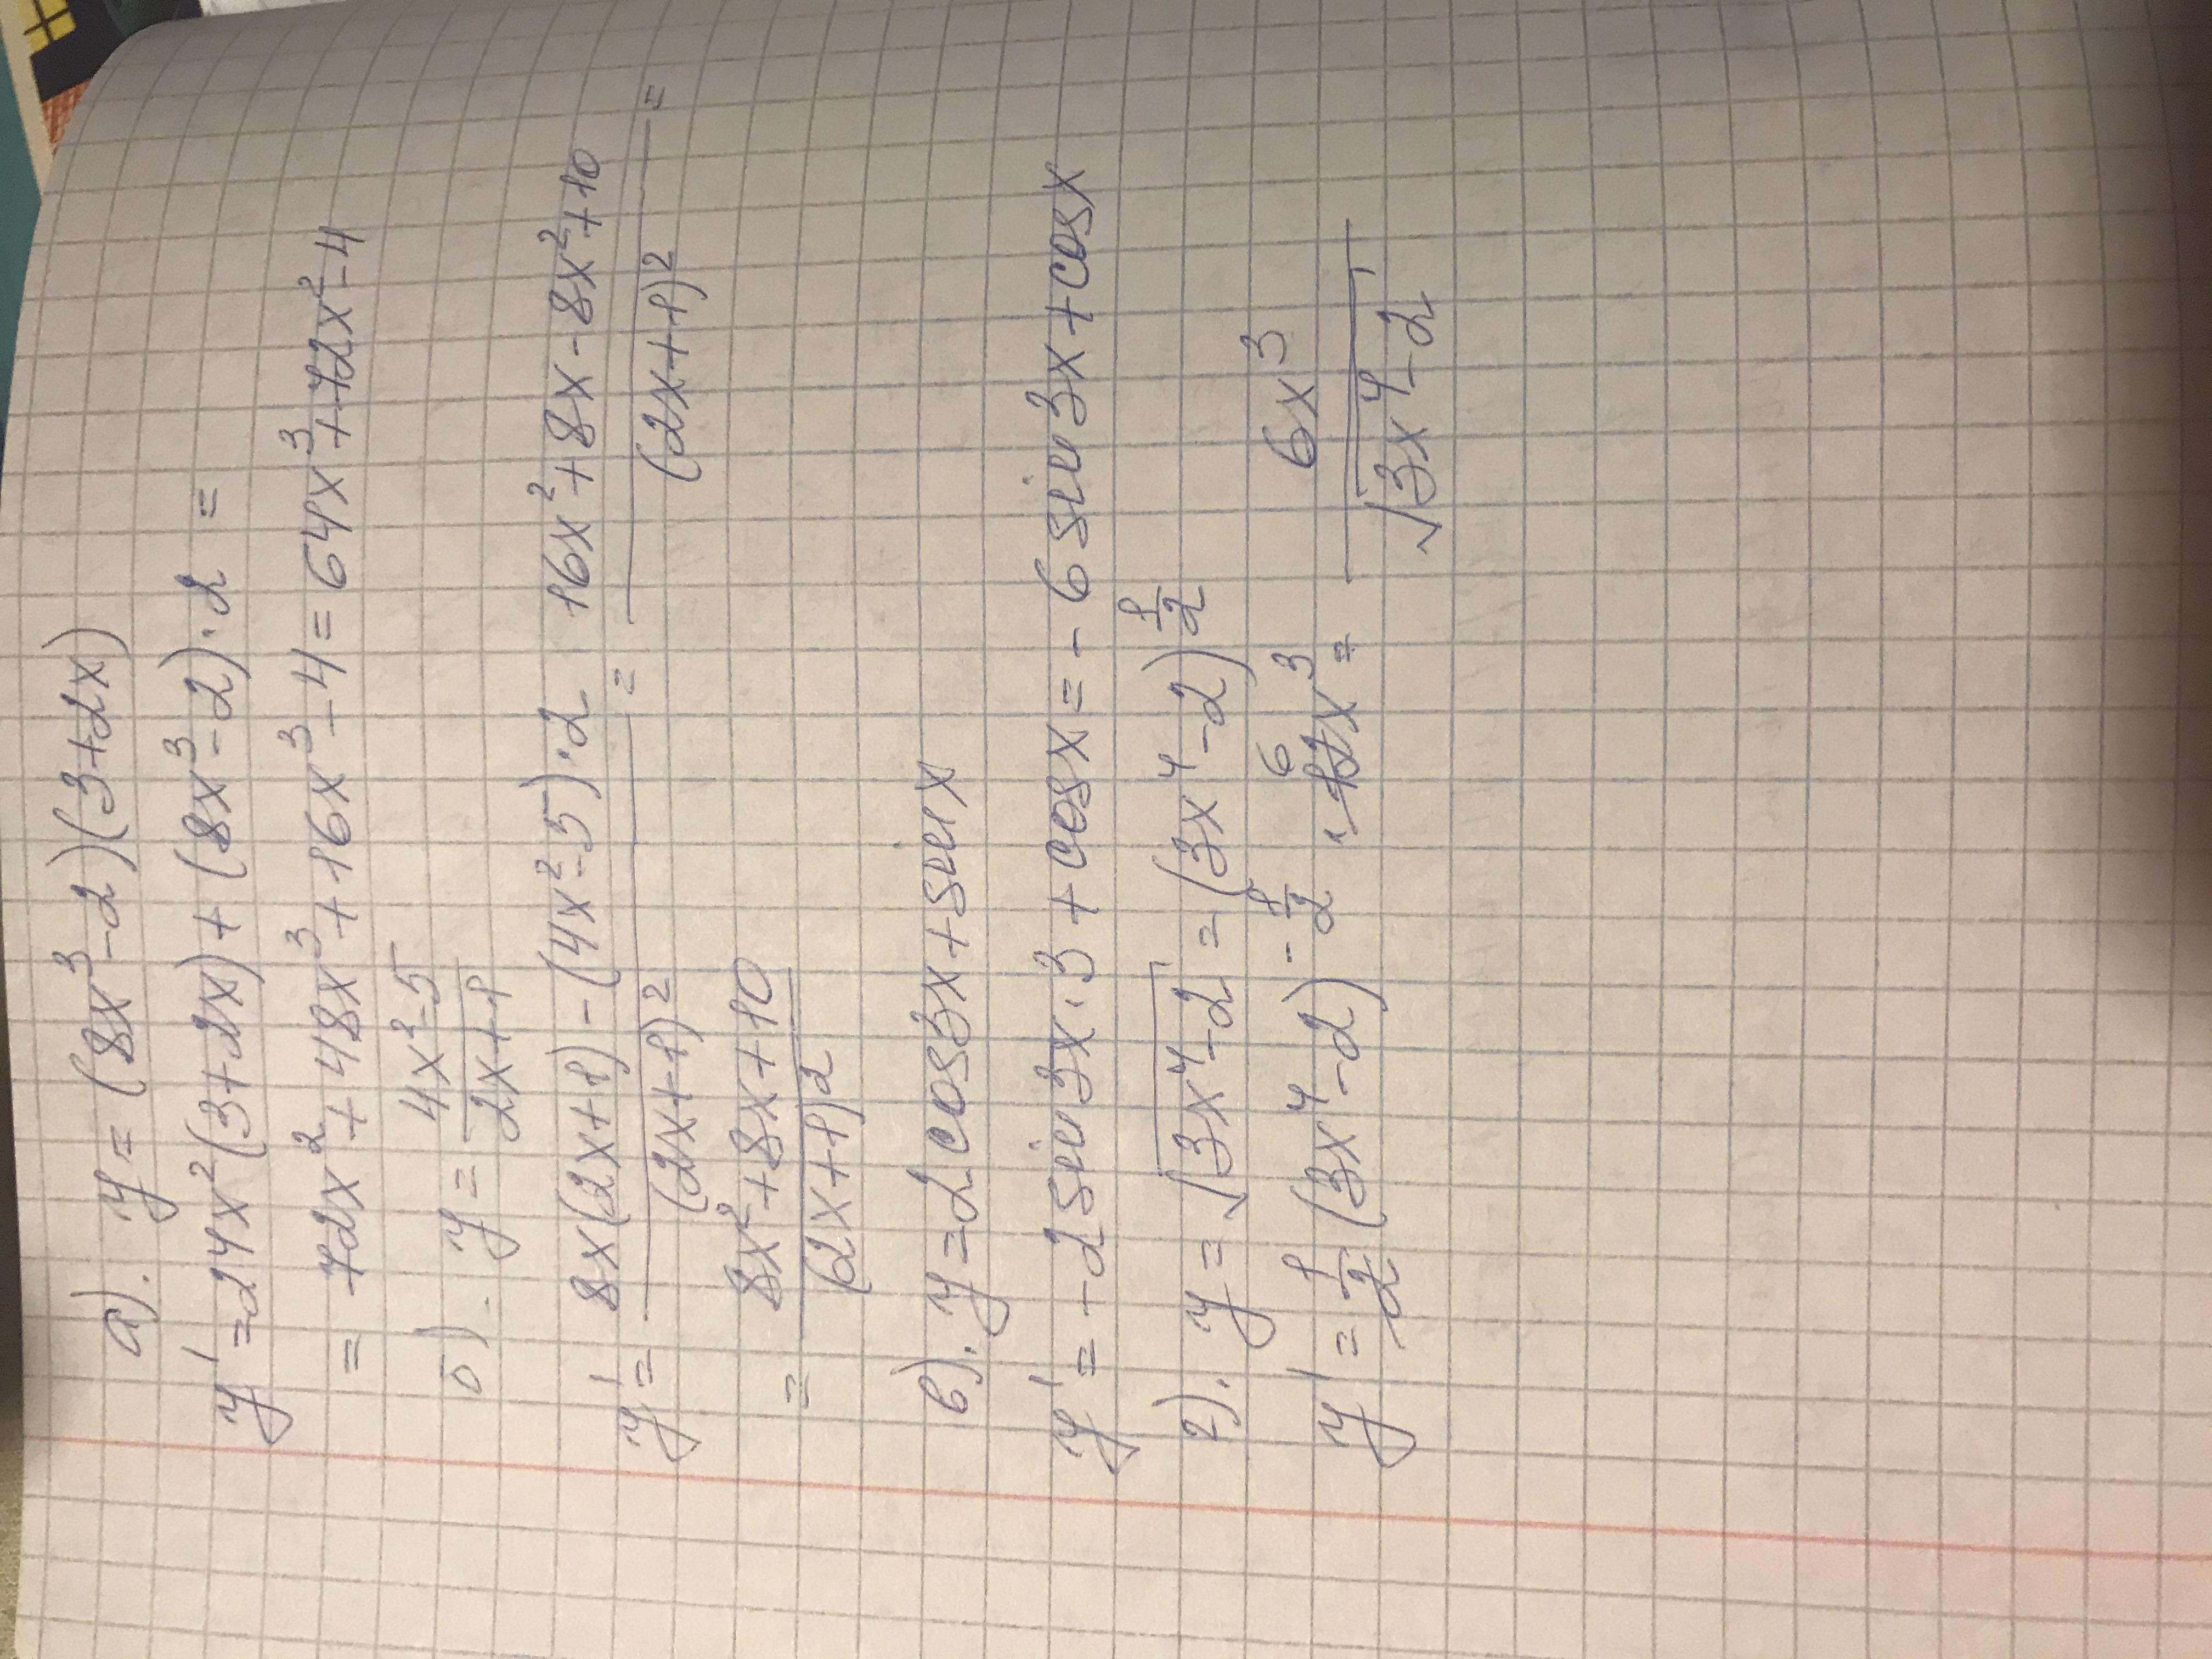 а). y = (8x³-2)(3+2x)
y' = 24x²(3+2x)+(8x³-2)·2 =
= 72x²+48x³+16x³-4 = 64x³+72x²-4
б). y = (4x²-5)/(2x+1)
y' = (8x(2x+1)-(4x²-5)·2)/(2x+1)² = (16x²+8x-8x²+10)/(2x+1)² =
= (8x²+8x+10)/(2x+1)²
в). y = 2cos3x+sinx
y' = -2sin3x·3+cosx = -6sin3x+cosx
г). y = √(3x⁴-2) = (3x⁴-2)^(1/2)
y' = 1/2(3x⁴-2)^(-1/2)·12x³ 6 = 6x³/√(3x⁴-2)